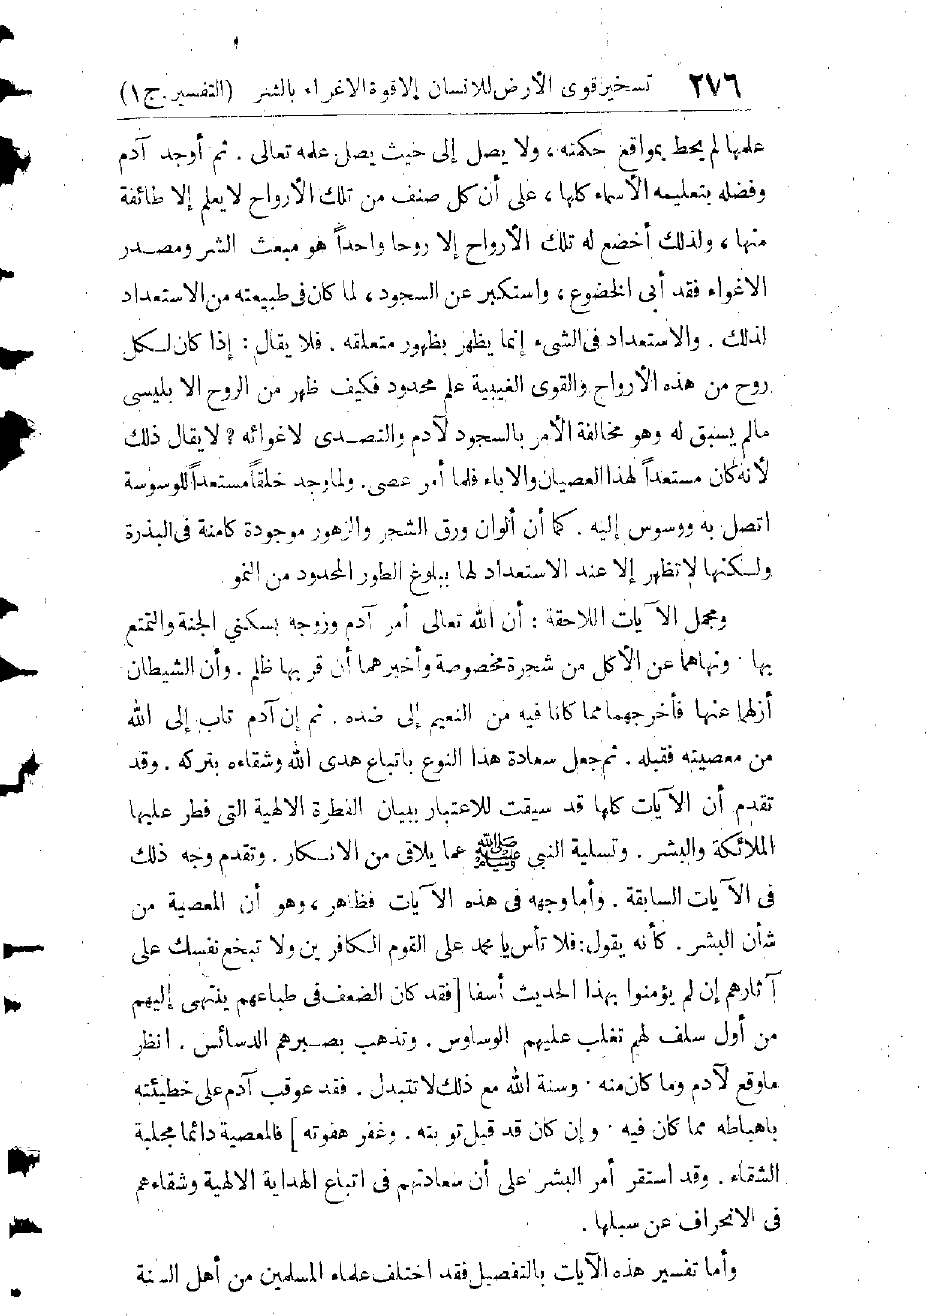 ٢٧٦ تسخير قوى الأرض للانسان إلا قوة الاغراء بالشر (التفسير. ج ١)
علمها لم يحط بمواقع حكمته، ولا يصل إلى حيث يصل علمه تعالى . ثم أوجد آدم
وفضله بتعليمه الأسماء كلها، على أن كل صنف من تلك الأرواح لا يعلم إلا طائفة
منها، ولذلك أخضع له تلك الأرواح إلا روحا واحداً هو مبعث الشر ومصدر
الاغواء فقد أبى الخضوع، واستكبر عن السجود، لما كان فى طبيعته من الاستعداد
لذلك . والاستعداد فى الشىء إنما يظهر بظهور متعلقه . فلا يقال : إذا كان لكل
روح من هذه الأرواح والقوى الغيبية علم محدود فكيف ظهر من الروح الا بليسى
مالم يسبق له وهو مخالفة الأمر بالسجود لآدم والتصدى لاغوائه ? لا يقال ذلك
لأنه كان مستعداً لهذا العصيان والاباء فلما أمر عصى. ولما وجد خلقاً مستعداً للوسوسة
اتصل به ووسوس إليه . كما أن ألوان ورق الشجر والزهور موجودة كامنة فى البذرة
ولكنها لا تظهر إلا عند الاستعداد لها ببلوغ الطور المحدود من النمو
ومجمل الآيات اللاحقة : أن الله تعالى أمر آدم وزوجه بسكنى الجنة والتمتع
بها . ونهاهما عن الأكل من شجرة مخصوصة وأخبرهما أن قربها ظلم . وأن الشيطان
أزلهما عنها فأخرجهما مما كانا فيه من النعيم إلى ضده . ثم إن آدم تاب إلى الله
من معصيته فقبله . ثم جعل سعادة هذا النوع باتباع هدى الله وشقاءه بتركه . وقد
تقدم أن الآيات كلها قد سيقت للاعتبار ببيان الفطرة الالهية التى فطر عليها
الملائكة والبشر . وتسلية النبي ﷺ عما يلاقى من الانكار . وتقدم وجه ذلك
فى الآيات السابقة . وأما وجهه فى هذه الآيات فظاهر، وهو أن المعصية من
شأن البشر . كأنه يقول: فلا تأس يا محمد على القوم الكافرين ولا تبخع نفسك على
آثارهم إن لم يؤمنوا بهذا الحديث أسفا [فقد كان الضعف فى طباعهم ينتهى إليهم
من أول سلف لهم تغلب عليهم الوساوس . وتذهب بصبرهم الدسائس . انظر
ماوقع لآدم وما كان منه . وسنة الله مع ذلك لا تتبدل . فقد عوقب آدم على خطيئته
باهباطه مما كان فيه . وإن كان قد قبل توبته . وغفر هفوته ] فالمعصية دائما مجلبة
الشقاء . وقد استقر أمر البشر على أن سعادتهم فى اتباع الهداية الالهية وشقاءهم
فى الانحراف عن سبلها .
وأما تفسير هذه الآيات بالتفصيل فقد اختلف علماء المسلمين من أهل السنة